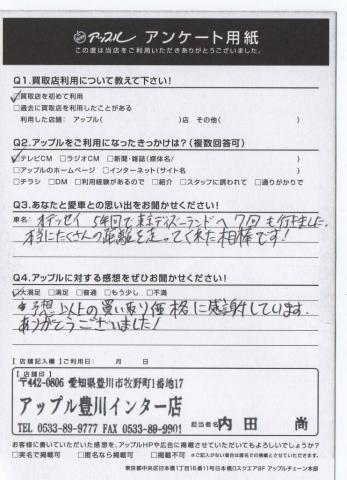 アップル アンケート用紙
この度は当店をご利用いただきありがとうございました。
Q1.買取店利用について教えて下さい!
☑買取店を初めて利用
□過去に買取店を利用したことがある
利用した店舗: アップル( )店 その他( )
Q2.アップルをご利用になったきっかけは?(複数回答可)
☑テレビCM □ラジオCM □新聞・雑誌(媒体名/ )
□アップルのホームページ □インターネット(サイト名 )
□チラシ □DM □利用経験があるので □紹介 □スタッフに誘われて □通りがかりで
Q3.あなたと愛車との思い出をお聞かせください!
車名: オデッセイ 5年間で東京ディズーランドへ7回も行きました。
本当にたくさんの距離を走ってくれた相棒です!
Q4.アップルに対する感想をぜひお聞かせください!
☑大満足 □満足 □普通 □もう少し □不満
予想以上の買い取り価格に感謝しています。
ありがとうございました!
【店舗記入欄】ご利用日: 月 日
【店舗印】
〒442-0806 愛知県豊川市牧野町1番地17
アップル豊川インター店
TEL 0533-89-9777 FAX 0533-89-9901
担当者名 内田 尚
お客様に書いていただいた感想を、アップルHPや広告に掲載させていただいてもよろしいでしょうか?
□実名で掲載可 □匿名なら掲載可 □掲載不可 ※ご記入がない場合は匿名での掲載とさせていただきます。
東京都中央区日本橋1丁目16番11号日本橋Dスクエア9F アップルチェーン本部